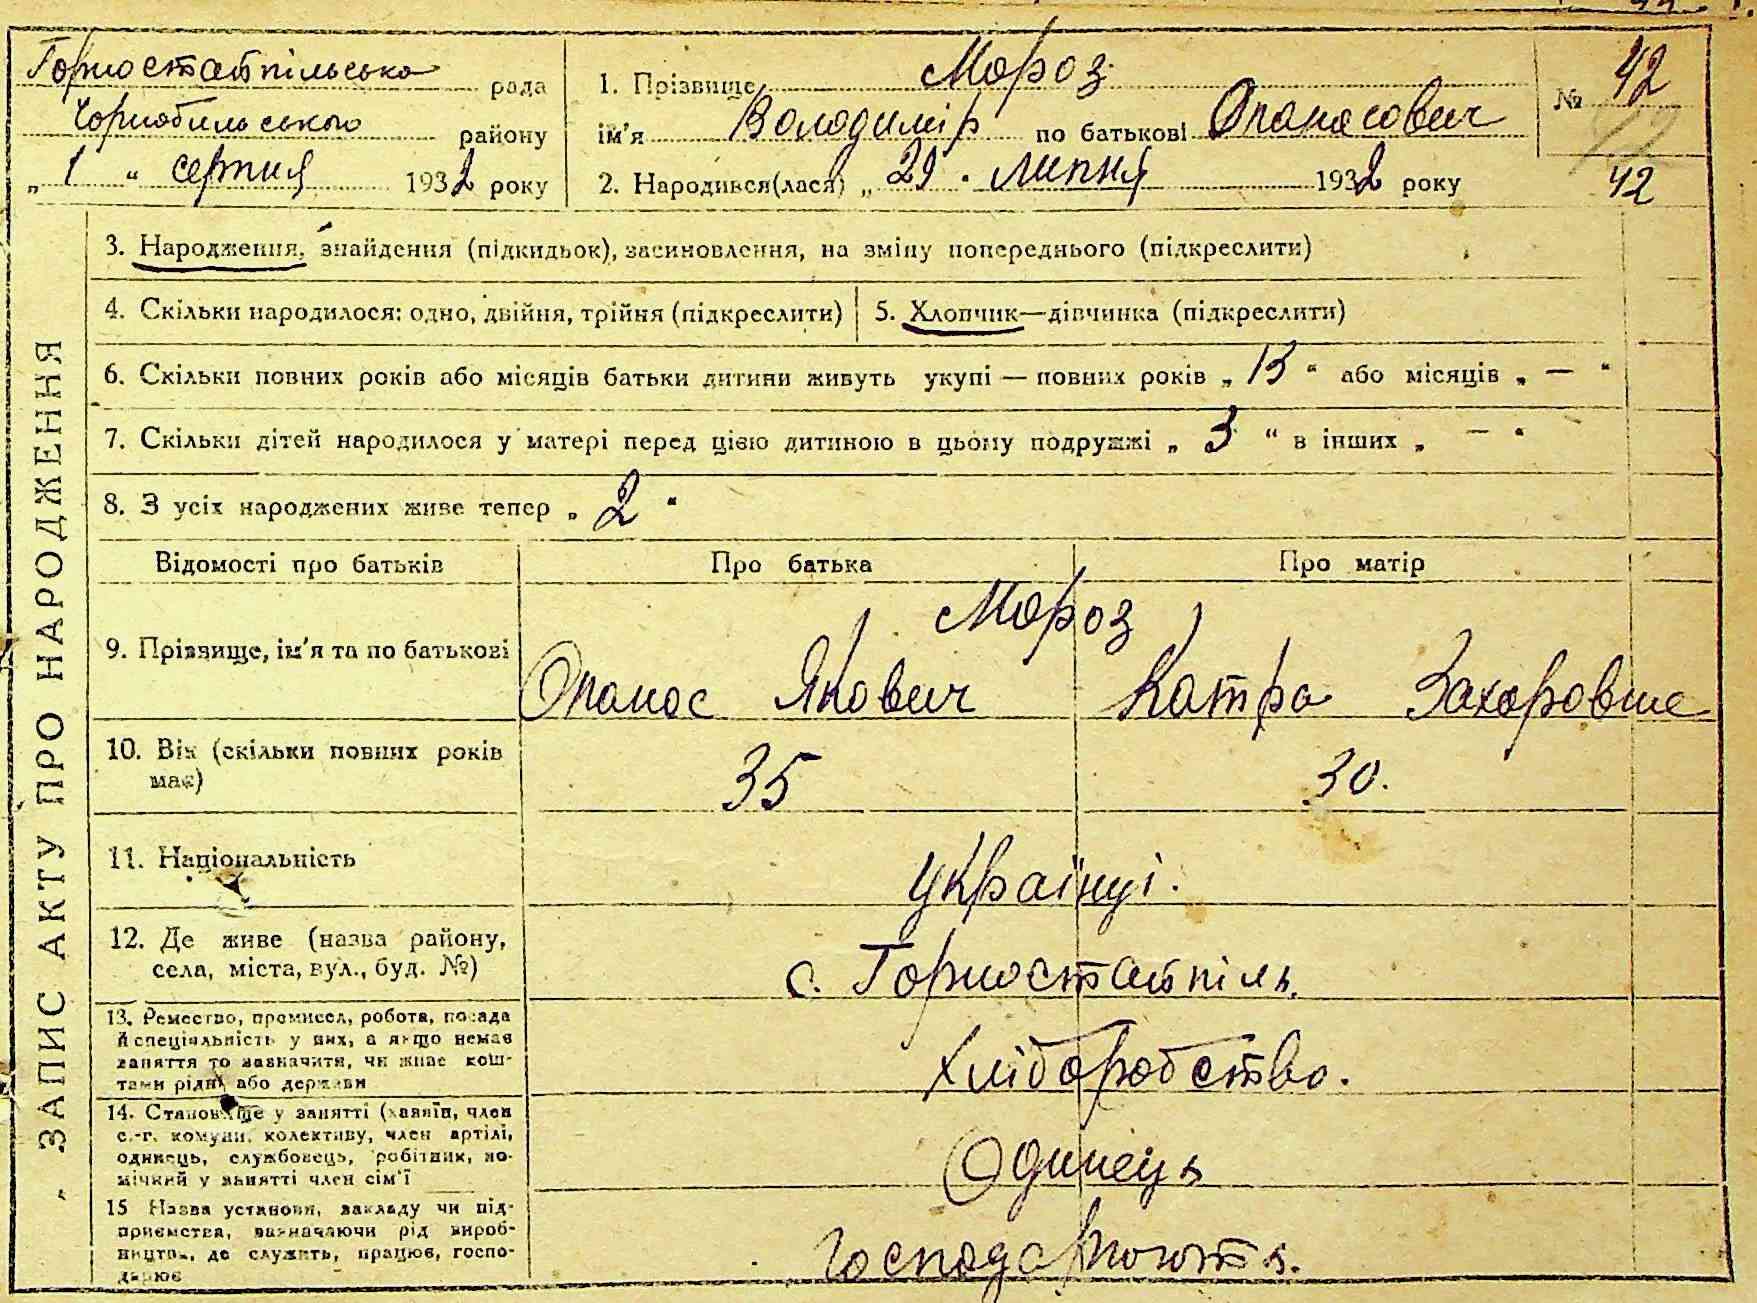 Горностайпільська рада
Чорнобильського району
„ 1 “ серпня 1932 року
1. Прізвище Мороз
ім'я Володимір по батькові Опанасович
2. Народився(лася) „ 29 . липня 1932 року
№ 42
42
ЗАПИС АКТУ ПРО НАРОДЖЕННЯ
3. Народження, знайдення (підкидьок), засиновлення, на зміну попереднього (підкреслити)
4. Скільки народилося: одно, двійня, трійня (підкреслити)
5. Хлопчик—дівчинка (підкреслити)
6. Скільки повних років або місяців батьки дитини живуть укупі — повних років „ 13 “ або місяців „ — “
7. Скільки дітей народилося у матері перед цією дитиною в цьому подружжі „ 3 “ в інших „ — “
8. З усіх народжених живе тепер „ 2 “
Відомості про батьків Про батька Про матір
Мороз
9. Прізвище, ім'я та по батькові Опанас Якович Катра Захаровна
10. Вік (скільки повних років має) 35 30.
11. Національність
українці.
12. Де живе (назва району,
села, міста, вул., буд. №) с. Горностайпіль.
13. Ремество, промисел, робота, посада
й спеціяльність у них, а якщо немає
заняття то зазначити, чи живе кош-
тами рідні або держави
Хліборобство.
14. Становище у занятті (хазяїн, член
с.-г. комуни, колективу, член артілі,
одинець, службовець, робітник, по-
мічний у занятті член сім'ї
Одинець
15 Назва установи, закладу чи під-
приємства, зазначаючи рід вироб-
ництва, де служить, працює, госпо-
дарює
Господарюють.